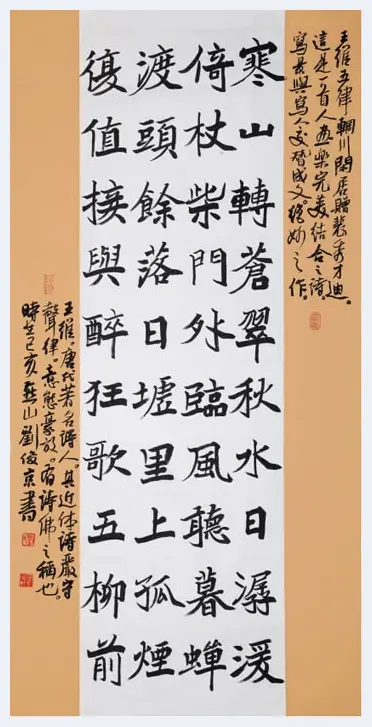 王維五律輞川閑居贈裴秀才迪。
這是一首人畫樂完美结合之詩。
寫景與寫人交替成文。絕妙之作。
寒山轉蒼翠秋水日潺湲
倚杖柴門外臨風聽暮蟬
渡頭餘落日墟里上孤煙
復值接與醉狂歌五柳前
王維。唐代著名詩人。其近体詩嚴守
聲律。意態豪放。有詩佛之稱也。
時在己亥燕山劉俊京書